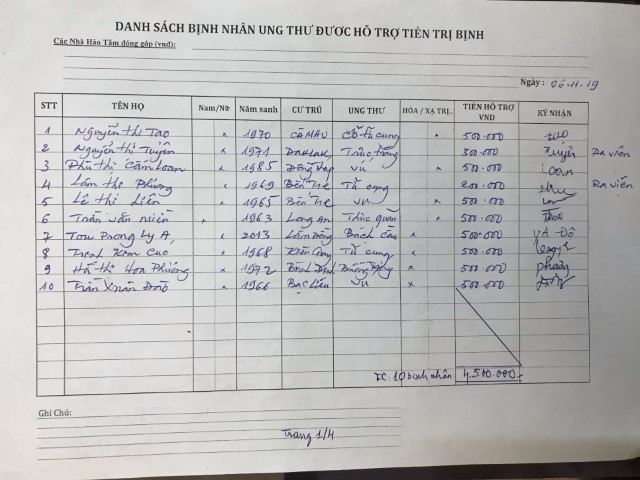 DANH SÁCH BỊNH NHÂN UNG THƯ ĐƯƠC HỖ TRỢ TIỀN TRỊ BỊNH
Các Nhà Hảo Tâm đóng góp (vnđ):
Ngày: 06.11.19
STT TÊN HỌ Nam/Nữ Năm sanh CƯ TRÚ UNG THƯ HÓA / XẠ TRỊ.. TIỀN HỖ TRỢ VND KÝ NHẬN
1 Nguyễn thị Tao x 1970 CÀ MAU Cổ tử cung x 500.000
2 Nguyễn thị Tuyền x 1971 DakLak Trực tràng 300.000 Tuyền Ra viện
3 Phù thị Cẩm Loan x 1985 Đồng tháp Vú x 500.000 Loan
4 Lâm thị Phương x 1969 Bến Tre Tử cung 200.000 Ra viện
5 Lê thị Liên x 1965 Bến Tre Vú x 500.000
6 Trần văn x 1963 Long An Thực quản x 500.000
7 Tou Prong Ly A x 2013 Lâm Đồng Bạch Cầu x 500.000 YA ĐÔ
8 Kim Cúc x 1968 Kiên Giang Tử cung x 500.000
9 Hồ thị Hoa Phượng x 1972 Bình Định Buồng trứng x 500.000 phượng
10 Trần Xuân Đào x 1966 Bạc Liêu Vú x 500.000
TC: 10 bịnh nhân 4.500.000
Ghi Chú:
Trang 1/4